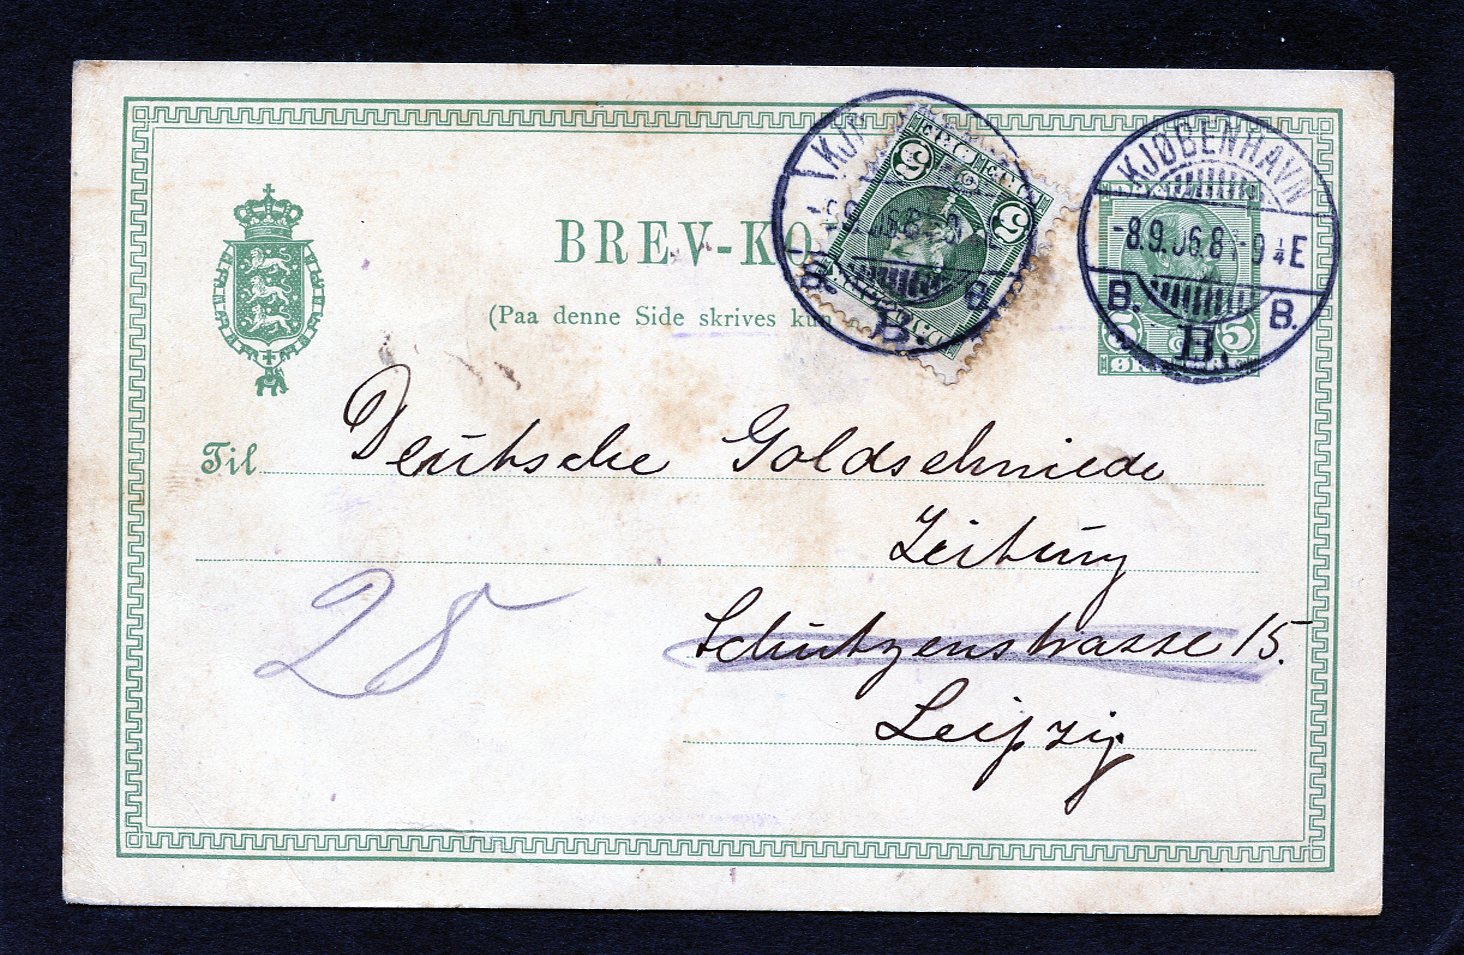 BREV-KO
(Paa denne Side skrives kun
KJØBENHAVN
-8.9.06.8-9¼E
B. B.
B.
5 5
ØRE
5 5
B. B.
B.
Til Deutsche Goldschmiede
Zeitung
Schützenstrasse 15.
Leipzig
28